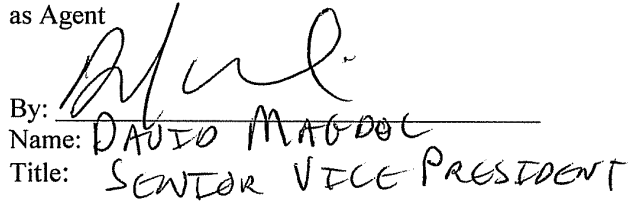 as Agent
By:
Name: DAVID MAGDOL
Title: SENIOR VICE PRESIDENT